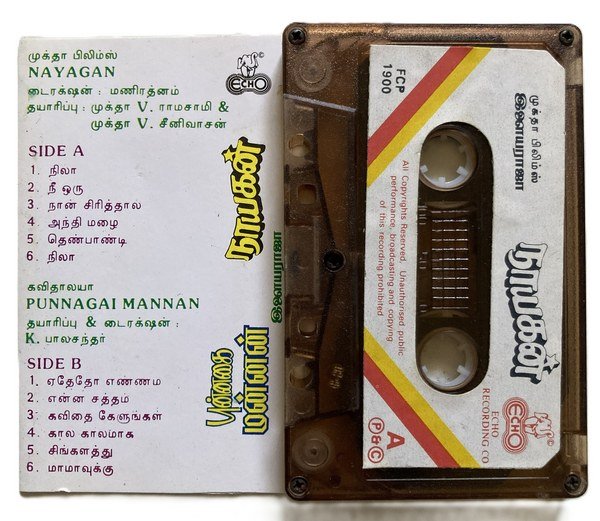 முக்தா பிலிம்ஸ்
NAYAGAN
டைரக்ஷன் : மணிரத்னம்
தயாரிப்பு : முக்தா V. ராமசாமி &
முக்தா V. சீனிவாசன்
ECHO
SIDE A
1. நிலா
2. நீ ஒரு
3. நான் சிரித்தால
4. அந்தி மழை
5. தெண்பாண்டி
6. நிலா
நாயகன்
இளையராஜா
கவிதாலயா
PUNNAGAI MANNAN
தயாரிப்பு & டைரக்ஷன் :
K. பாலசந்தர்
SIDE B
1. ஏதேதோ எண்ணம
2. என்ன சத்தம்
3. கவிதை கேளுங்கள்
4. கால காலமாக
5. சிங்களத்து
6. மாமாவுக்கு
புன்னகை
மன்னன்
FCP
1900
முக்தா பிலிம்ஸ்
இளையராஜா
நாயகன்
All Copyrights Reserved. Unauthorised public
performance, broadcasting and copying
of this recording prohibited
ECHO
ECHO
RECORDING CO
A
P&C